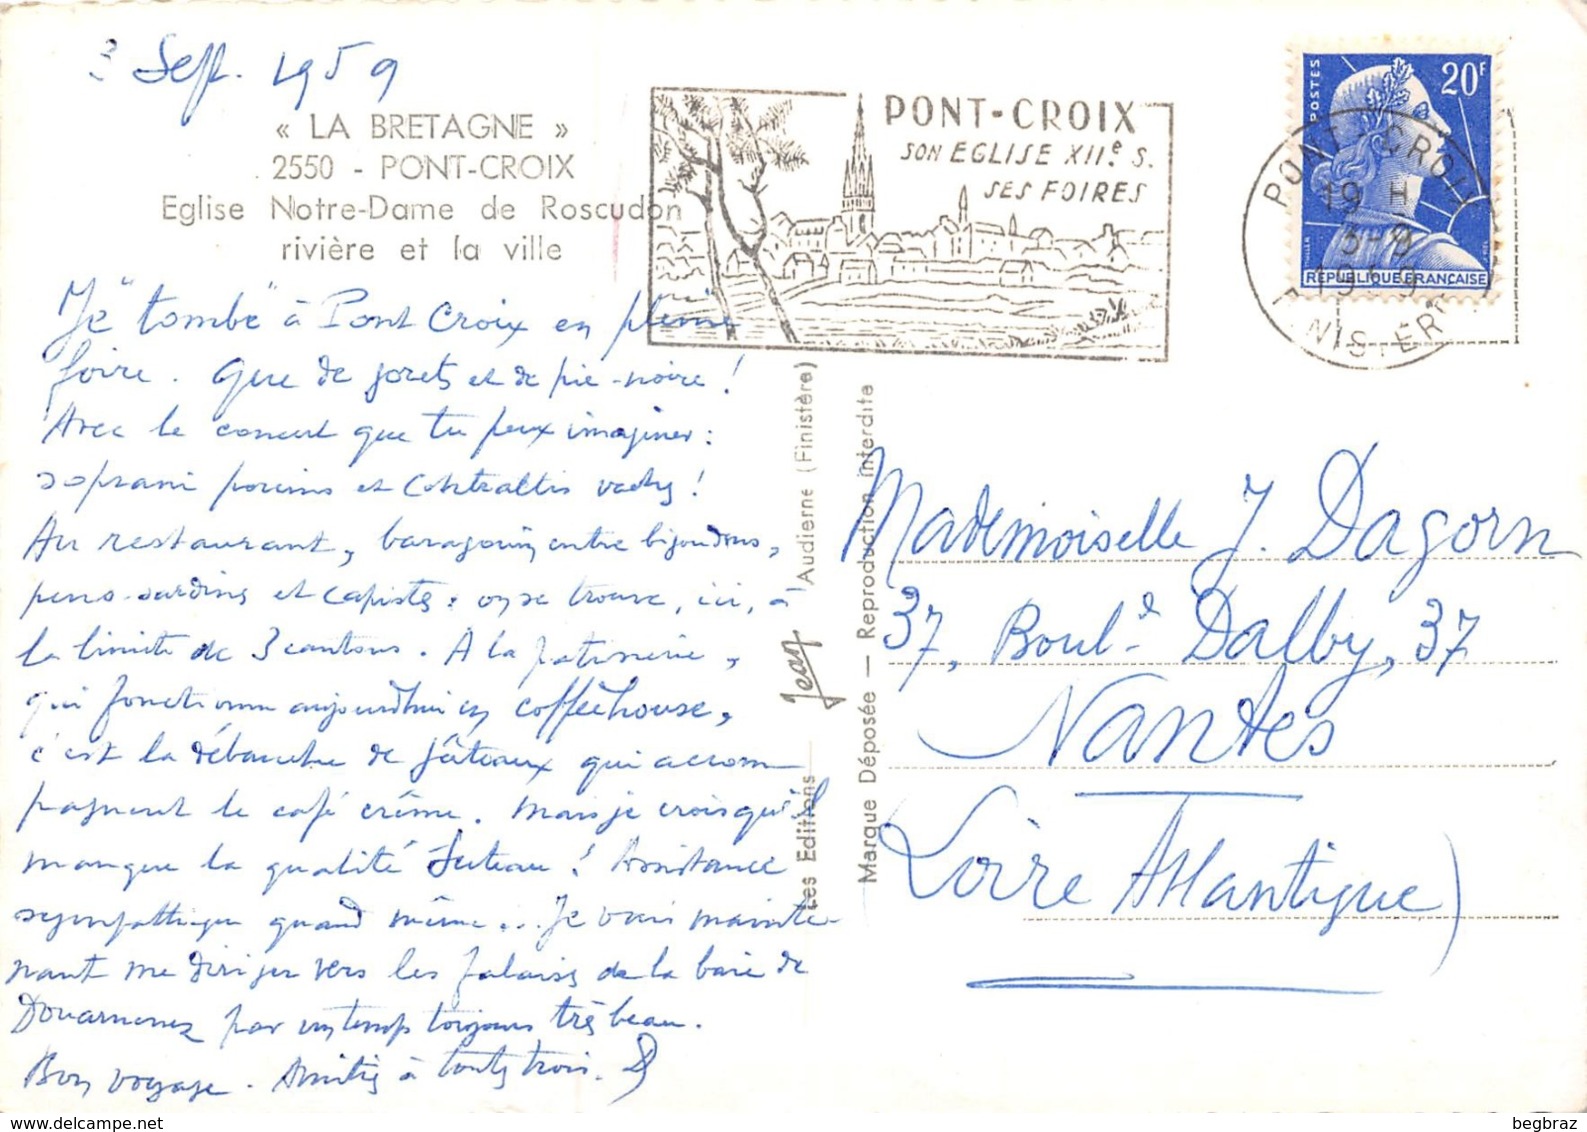 3 Sept. 1959
« LA BRETAGNE »
2550 - PONT-CROIX
Eglise Notre-Dame de Roscudon
rivière et la ville
Je "tombe" à Pont Croix en pleine
foire. Que de gorets et de pie-noire !
Avec le concert que tu peux imaginer :
soprani porcins et contraltis vachs !
Au restaurant, baragouin entre bigoudens,
penn-sardins et capistes : on se trouve, ici, à
la limite de 3 cantons. A la patisserie,
qui fonctionne aujourdhui en coffeehouse,
c'est la débauche de gâteaux qui accom
pagnent le café crème. Mais je crois qu'il
manque la qualité ! Assistance
sympathique quand même... Je vais mainte-
nant me diriger vers les falaises de la baie de
Douarnenez par un temps toujours très beau.
Bon voyage. Amitiés à toutes trois.
PONT-CROIX
SON EGLISE XIIe S.
SES FOIRES
POSTES
20F
REPUBLIQUE FRANÇAISE
PONT-CROIX
19 H
3-9
1959
FINISTERE
Les Editions Jean Audierne (Finistère)
Marque Déposée — Reproduction interdite
Mademoiselle J. Dagorn
37, Boul.d Dalby, 37
Nantes
Loire Atlantique)
begbraz